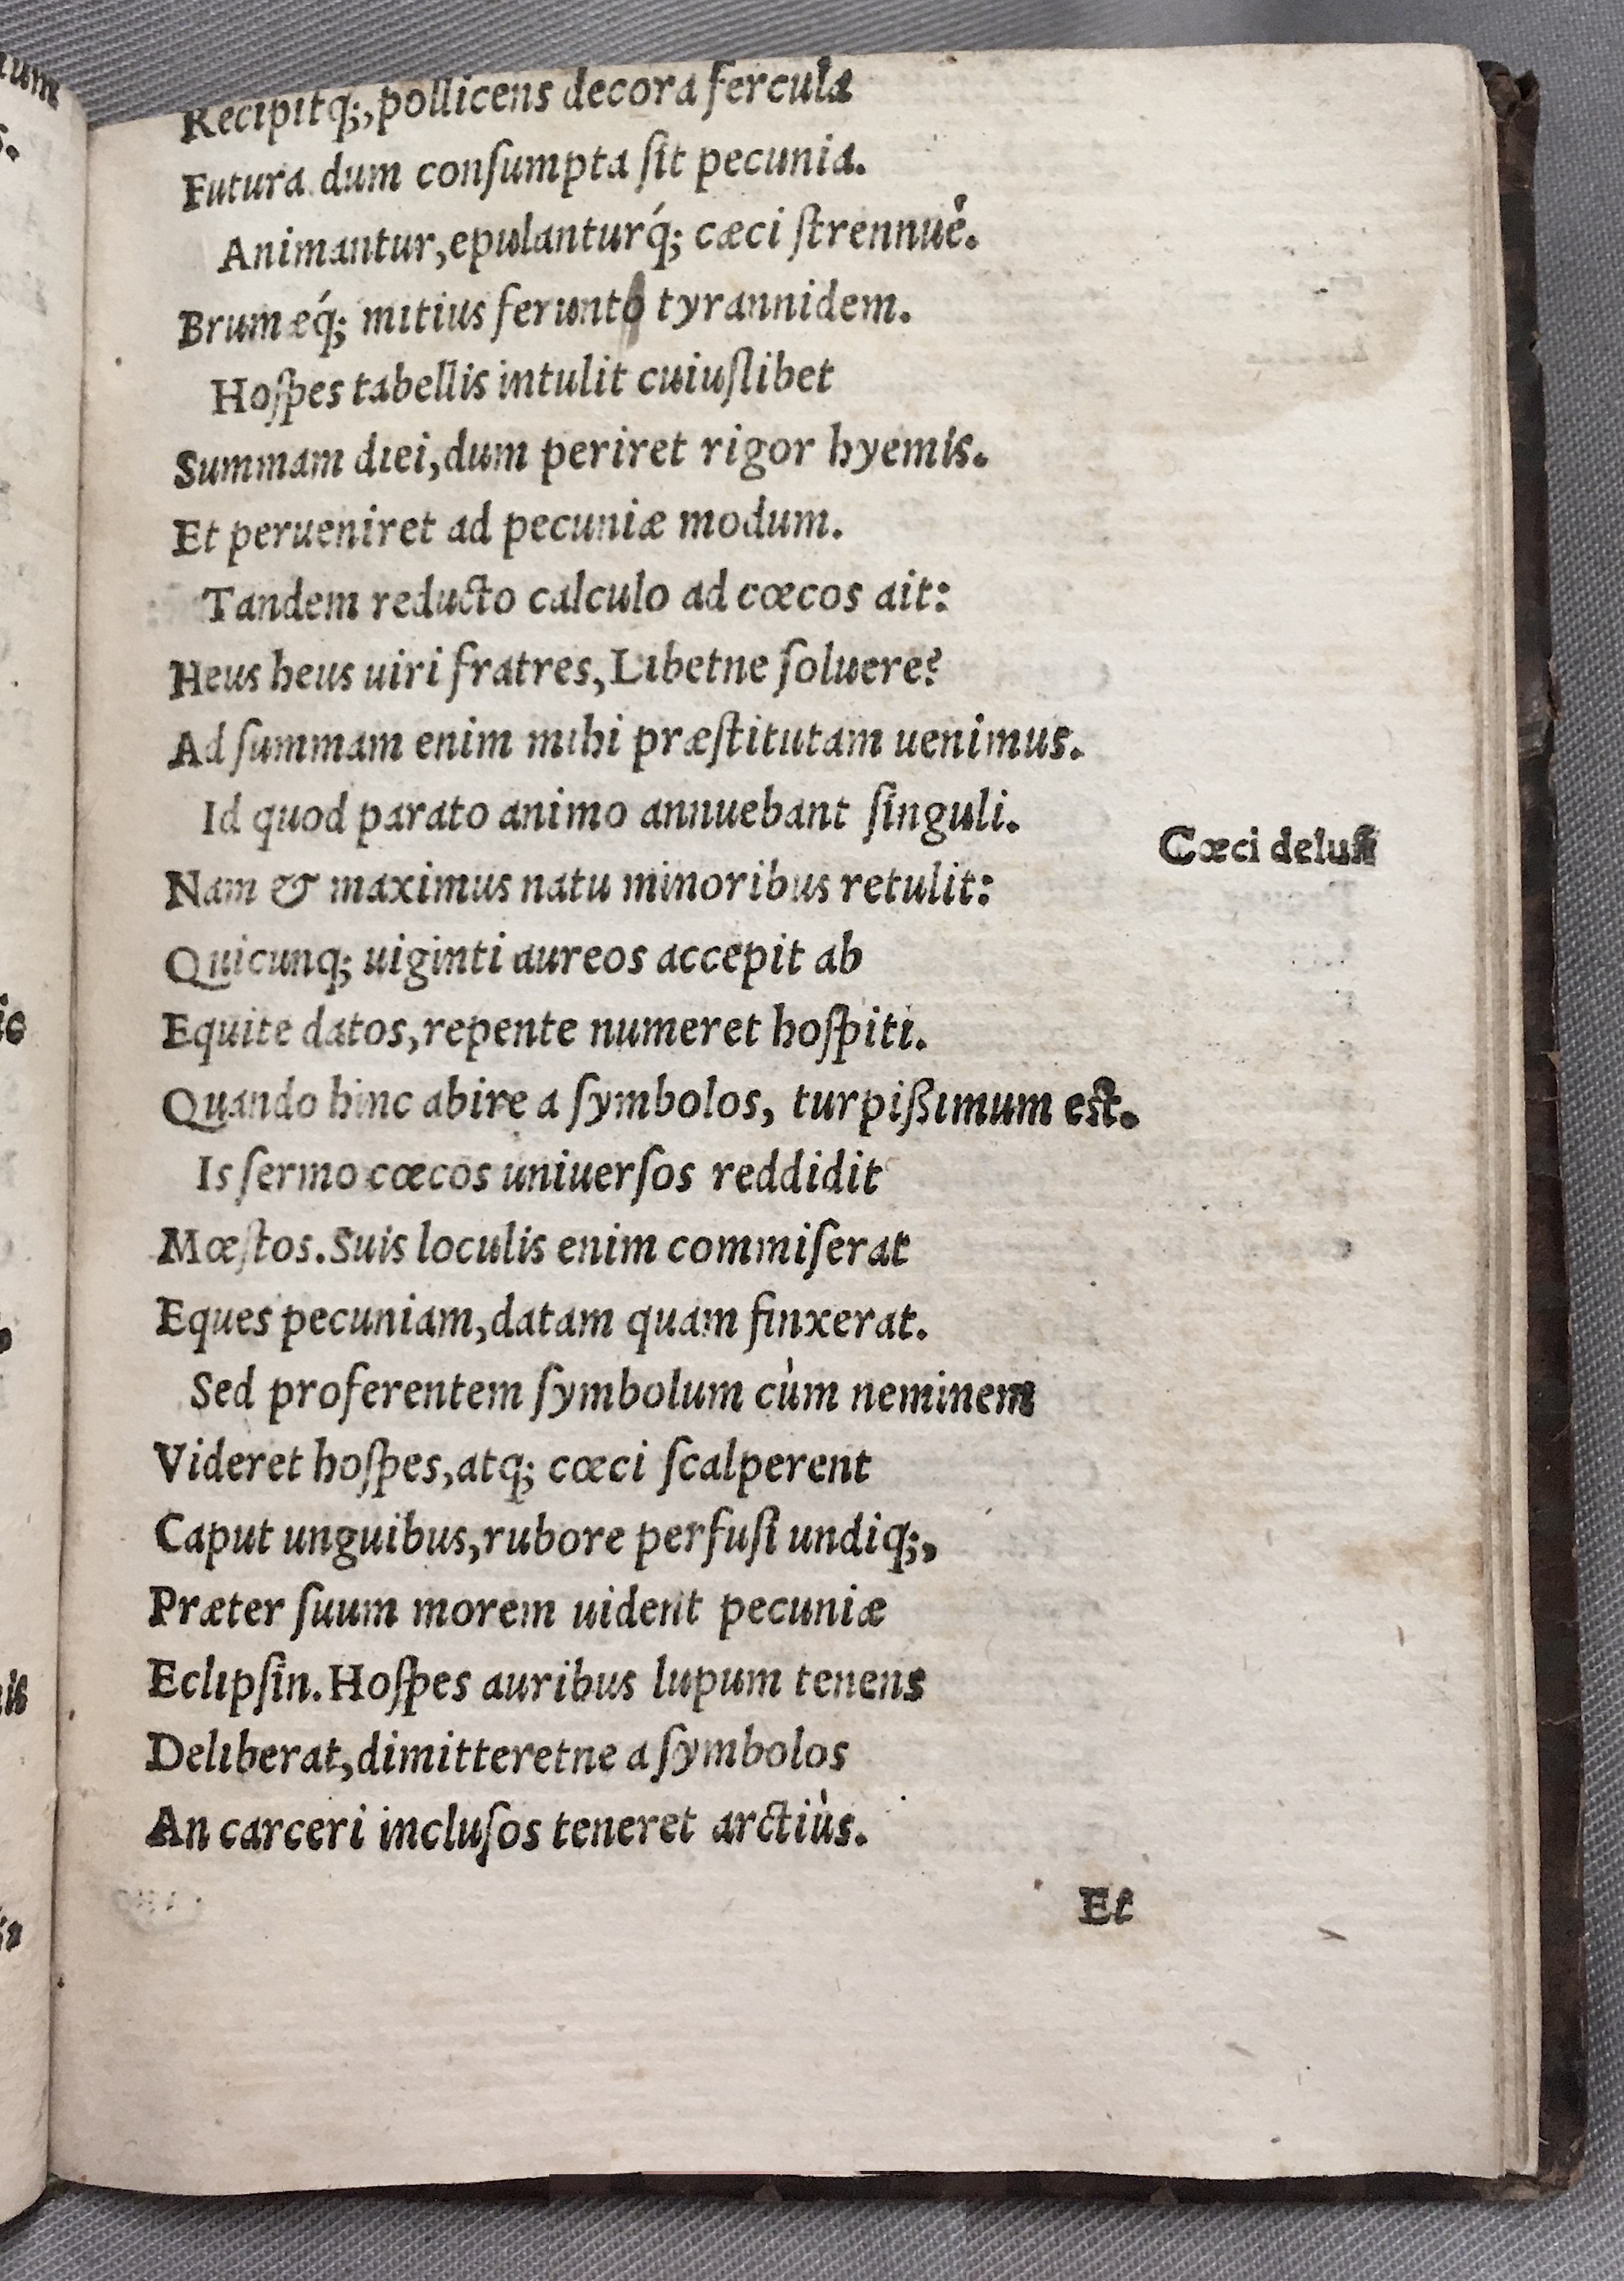 Recipitq́;,pollicens decora fercula
Futura dum conſumpta ſit pecunia.
Animantur,epulanturq́; cæci ſtrennuè.
Brumæq́; mitius ferunto tyrannidem.
Hoſpes tabellis intulit cuiuſlibet
Summam diei,dum periret rigor hyemis.
Et perueniret ad pecuniæ modum.
Tandem reducto calculo ad cœcos ait:
Heus heus uiri fratres,Libetne ſoluere?
Ad ſummam enim mihi præſtitutam uenimus.
Id quod parato animo annuebant ſinguli.
Cœci deluſi
Nam & maximus natu minoribus retulit:
Quicunq; uiginti aureos accepit ab
Equite datos,repente numeret hoſpiti.
Quando hinc abire a ſymbolos, turpißimum est.
Is ſermo cœcos uniuerſos reddidit
Mœſtos.Suis loculis enim commiſerat
Eques pecuniam,datam quam finxerat.
Sed proferentem ſymbolum cùm neminem
Videret hoſpes,atq; cœci ſcalperent
Caput unguibus,rubore perfuſi undiq;,
Præter ſuum morem uident pecuniæ
Eclipſin.Hoſpes auribus lupum tenens
Deliberat,dimitteretne a ſymbolos
An carceri incluſos teneret arctiùs.
Et